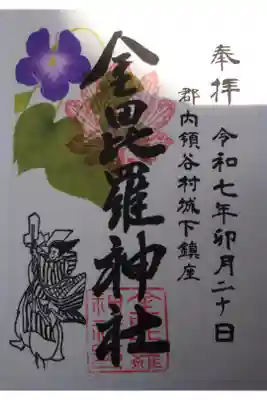 奉拝
令和七年卯月二十日
郡内領谷村城下鎮座
金毘羅神社